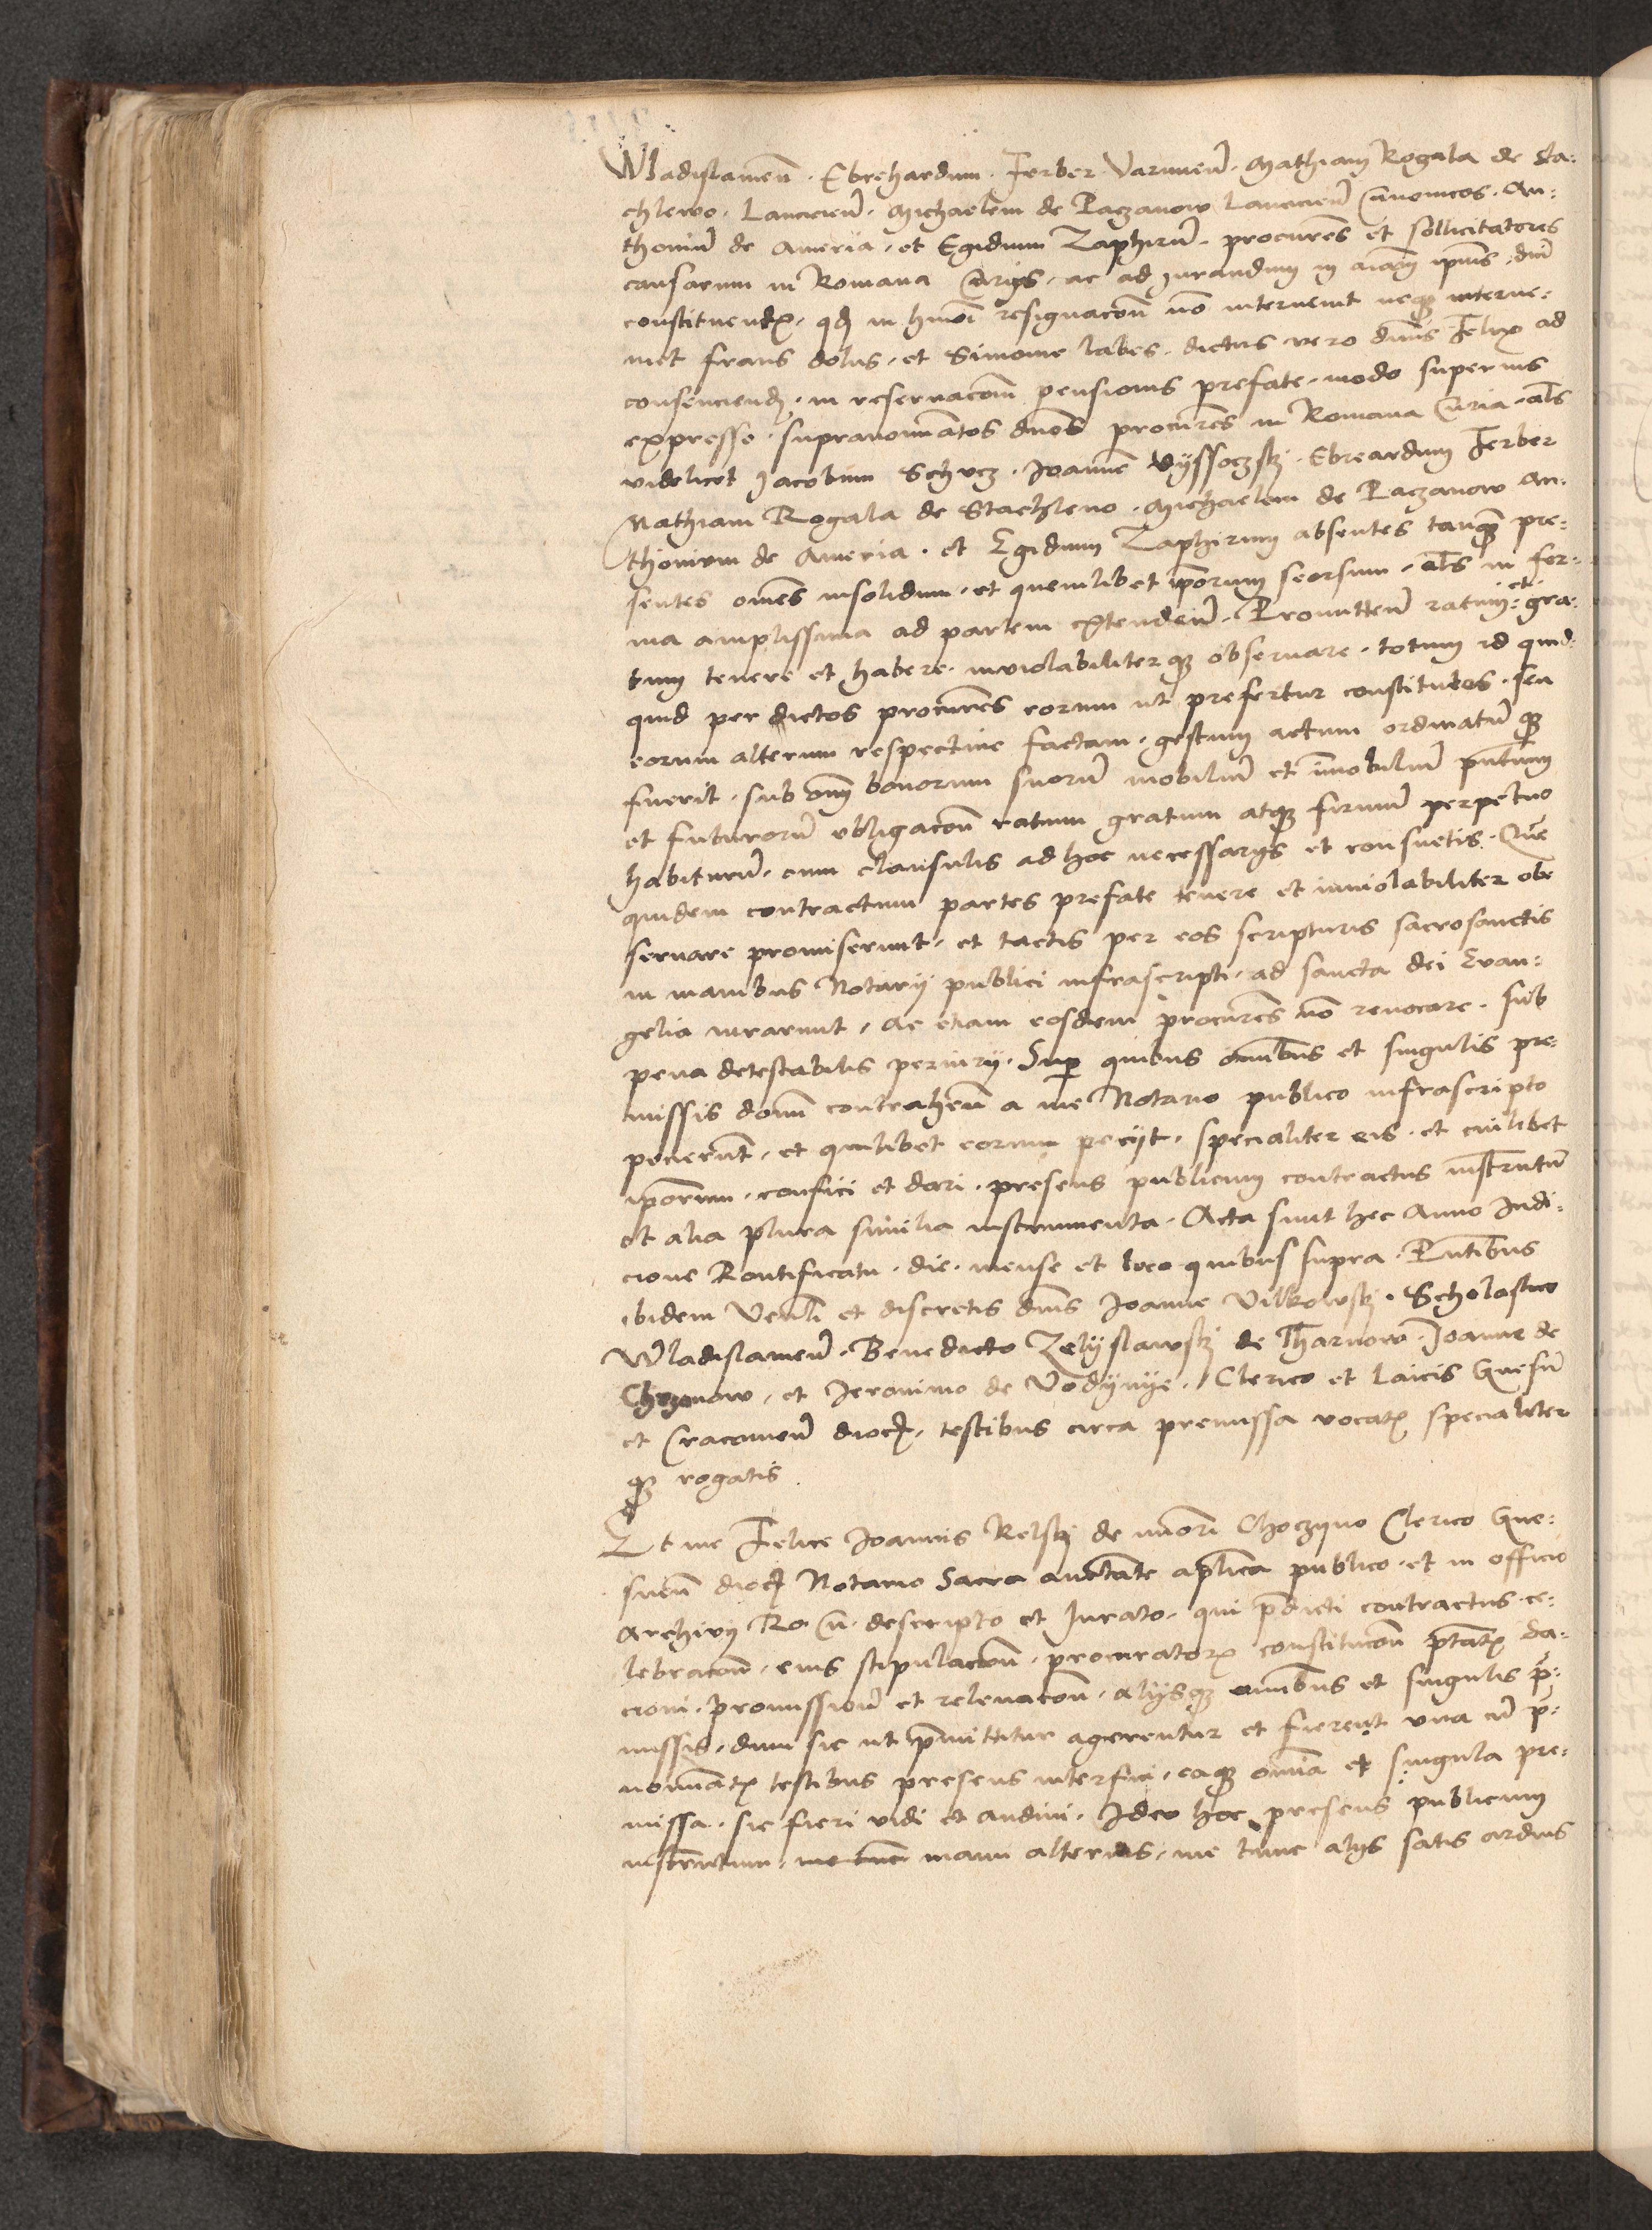 Wladislauien̄ · Ebrehardum · Ferber Varmien̄ · Mathiam Rogala de Sta:
chlewo · Lancicien̄ · Michaelem de Paczanow Lancicien̄ Canonicos · An:
thoniū de Ameria · et Egidium Zaphirū · procures et sollicitatores
causarum in Romana Curia · ac ad iurandum in aīam ipsius dn̄i
constituentꝭ · qđ in hmōi resignacoñ nō interuenit neqꝫ interue:
niet fraus dolus · et Simonie labes · dictus vero dn̄us Felix ad
consenciendꝭ · in reseruacoñ pensionis prefate · modo superius
expresso · supranomiātos dnos procures in Romana Curia · als
videlicet Jacobum Schvcz · Joannē Vyssoczskj · Ebreardum Ferber
Mathiam Rogala de Stachleuo · Michaelem de Paczanow An:
thonium de Ameria · et Egidium Zaphirum absentes tanqꝫ pre:
sentes oīnes insolidum · et quemlibet ipsorum seorsum · als in for:
ma amplissima ad partem extendeñ · Promitteñ ratum: et: gra:
tum tenere et habere · inviolabiliterqꝫ obseruare · totum id quid:
quid per dictos procures eorum ut prefertur constitutos · seu
eorum alterum respectiue factam · gestum actum ordinatū qꝫ
fuerit · sub oīn bonorum suorū mobiliū et im̄obiliū pn̄tium
et futurorū obligacoñ ratum gratum atqꝫ firmū perpetuo
habiturū · cum clausulis ad hoc necessarijs et consuetis · Que
quidem contractum partes prefate tenere et inuiolabiliter obe
seruare promiserunt · et tactis per eos scripturis sacrosanctis
in manibus Notarij publici infrascripti · ad sancta dei Evan:
gelia iurarunt · ac etiam eosdem procures nō reuocare · sub
pena detestabilis periurij · Sup quibus om̄ibus et singulis pre:
missis domī contrahen̄ a me Notario publico infrascripto
pecierūt · et quilibet eorum pecijt · specialiter eis · et cuilibet
ipōrum · confici et dari · presens publicum contractus instrutū
et alia plura similia instrumenta · Acta sunt hec Anno Indi:
cione Pontificatu · die · mense et loco quibus supra · Pn̄tibus
ibidem Venli et discretis dn̄is Joanne Vilkowskj · Scholastico
Wladislauien̄ · Benedicto Zelyslawskj de Tharnow · Joanne de
Chrzanow · et Jeronimo de Vodynye · Clerico et Laicis Gnesn̄
et Cracouien̄ diocꝭ · testibus circa premissa vocatꝭ specialiter
qꝫ rogatis
Et me Felice Joannis Relskj de minori Choczyno Clerico Gne:
snen̄ diocꝭ Notario Sacra auctate aplica publico · et in officio
Archivij Ro: Cu: descripto et Jurato · qui p̄dicti contractus · ce:
lebracoñ · eius stipulacoñ · procuratorꝭ constitucoñ ptatꝭ da:
cioni · promissioñ et releuacoñ · alijsqꝫ om̄ibus et singulis p̄:
missis · dum sic ut p̄mittitur agerentur et fierent una cū p̄:
nomiātꝭ testibus presens interfui · eaqꝫ om̄ia et singula pre:
missa · sic fieri vidi et audiui · Ideo hoc presens publicum
instrumtum · manu alterius · me tunc alijs satis arduis